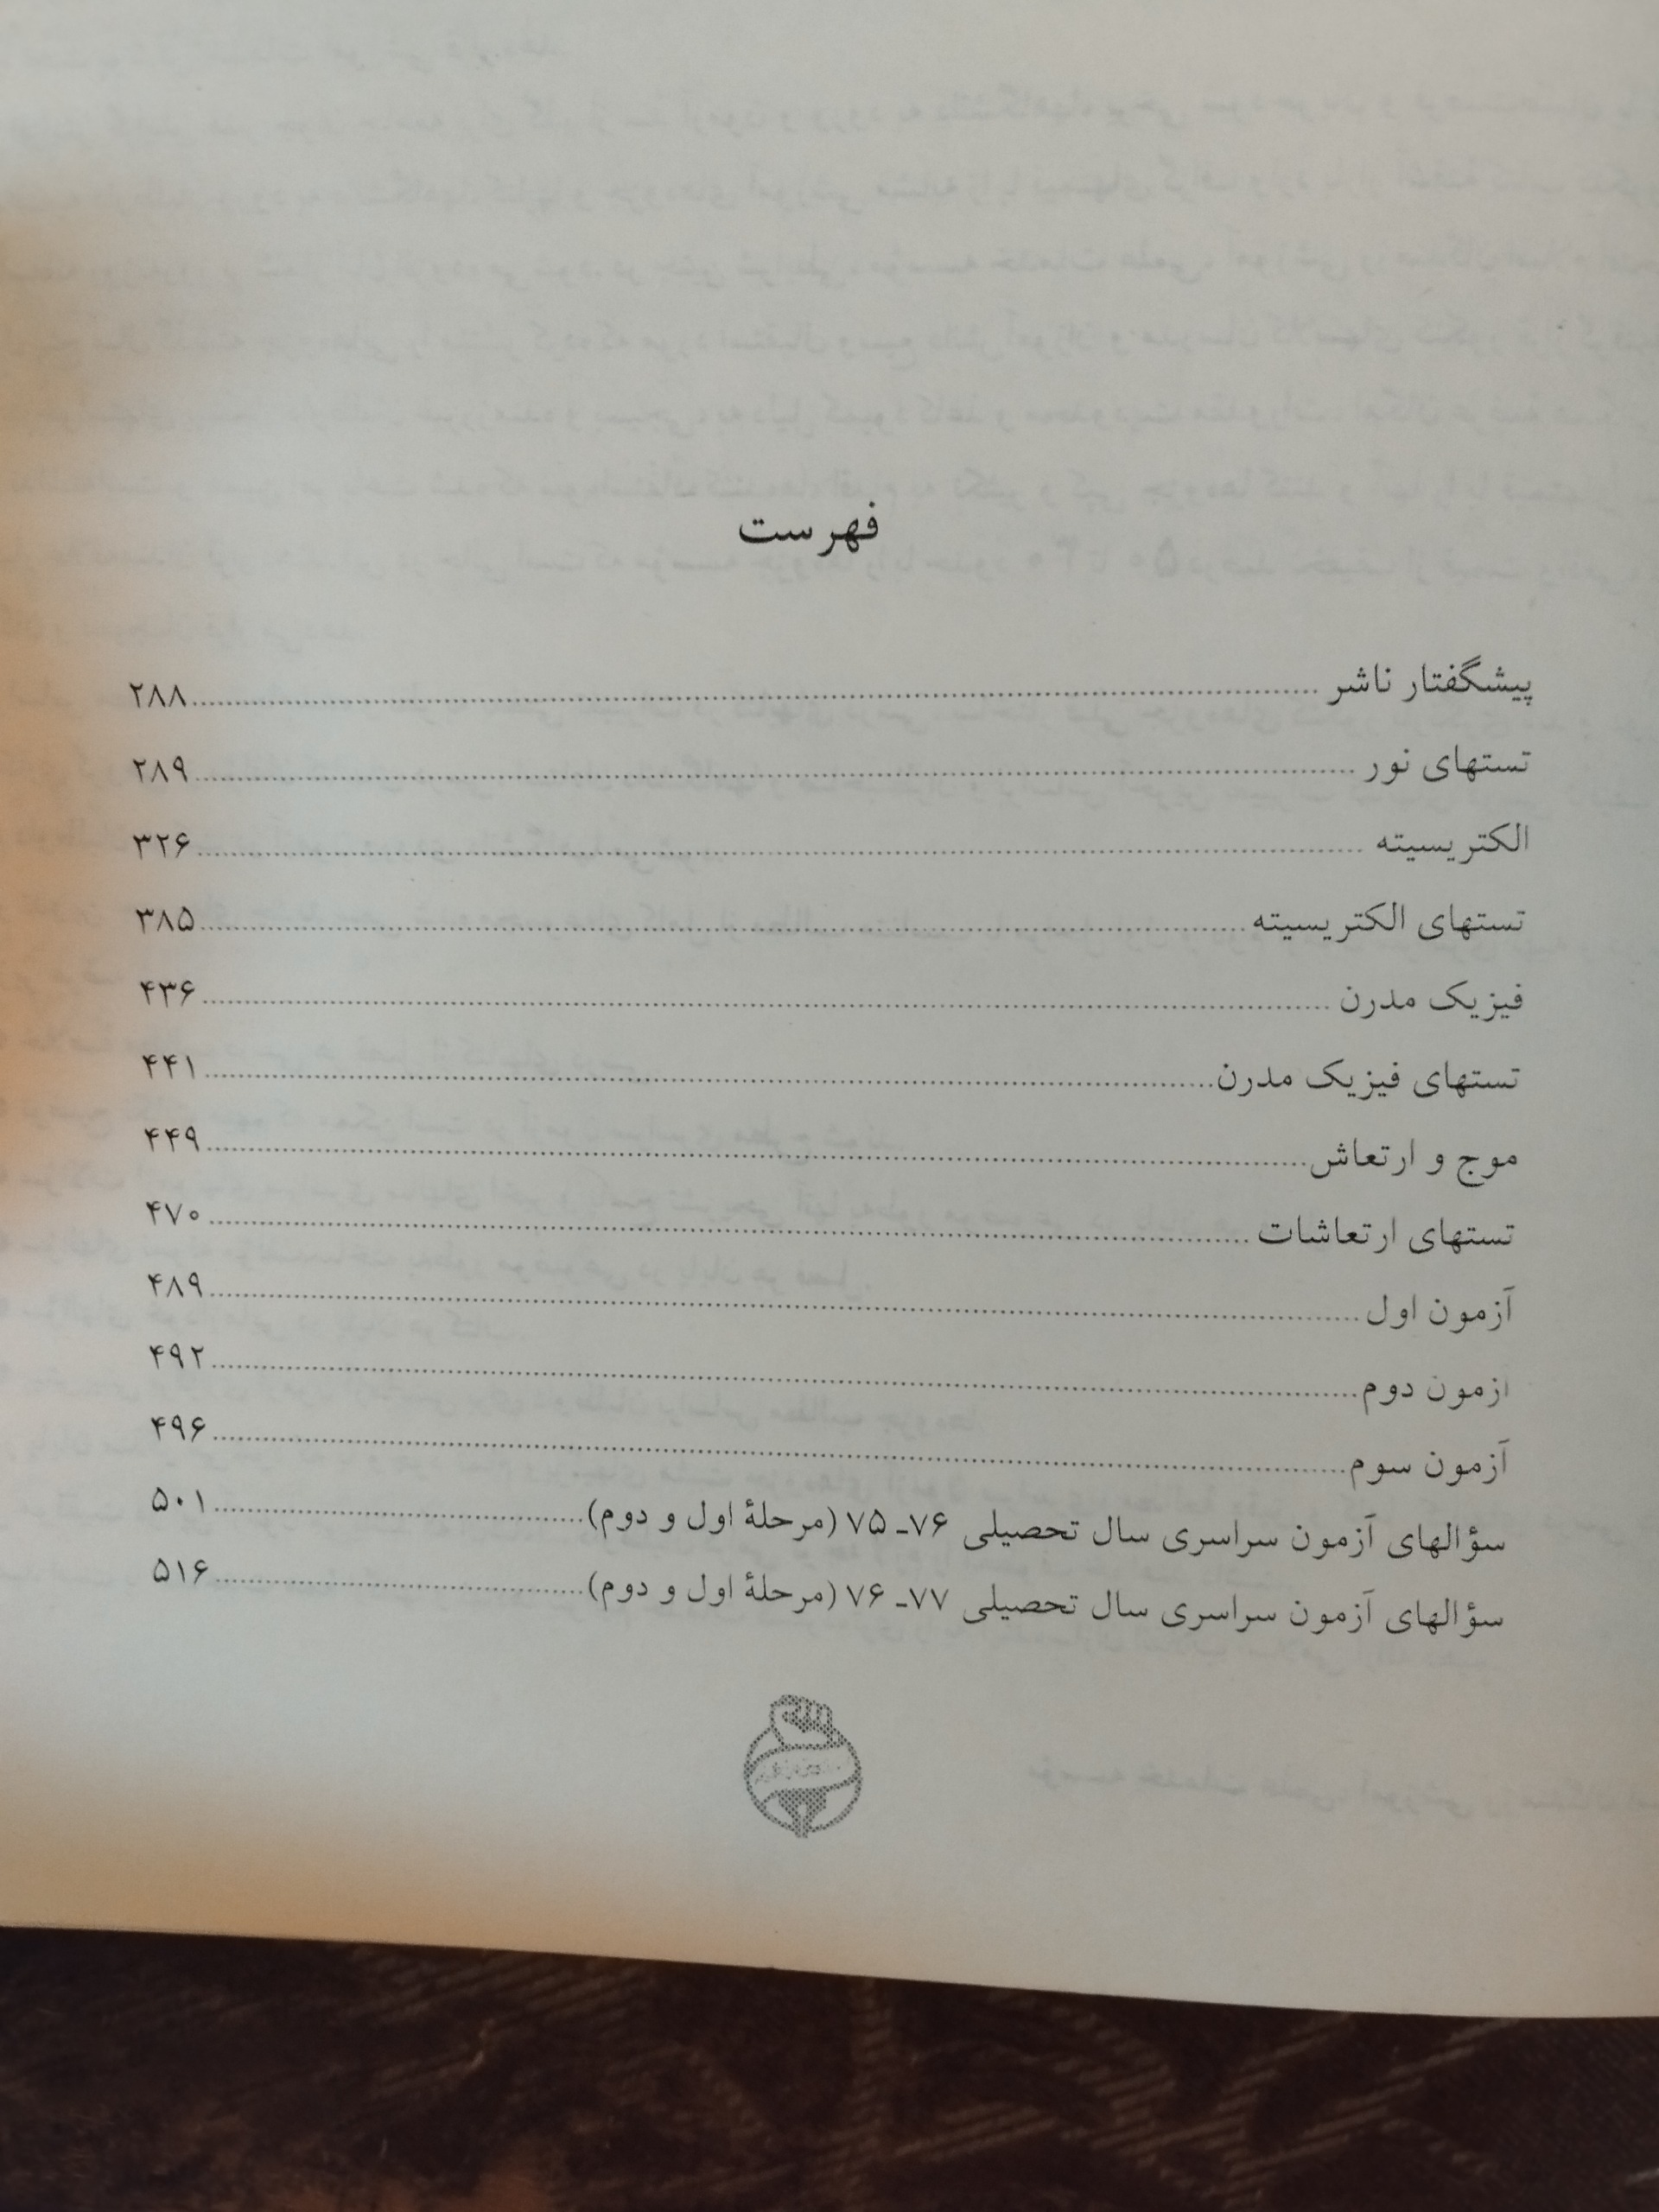 فهرست
پیشگفتار ناشر ........ ۲۸۸
تستهای نور ........ ۲۸۹
الکتریسیته ........ ۳۲۶
تستهای الکتریسیته ........ ۳۸۵
فیزیک مدرن ........ ۴۳۶
تستهای فیزیک مدرن ........ ۴۴۱
موج و ارتعاش ........ ۴۴۹
تستهای ارتعاشات ........ ۴۷۰
آزمون اول ........ ۴۸۹
ازمون دوم ........ ۴۹۲
آزمون سوم ........ ۴۹۶
سؤالهای آزمون سراسری سال تحصیلی ۷۶ـ ۷۵ (مرحلهٔ اول و دوم) ........ ۵۰۱
سؤالهای آزمون سراسری سال تحصیلی ۷۷ـ ۷۶ (مرحلهٔ اول و دوم) ........ ۵۱۶